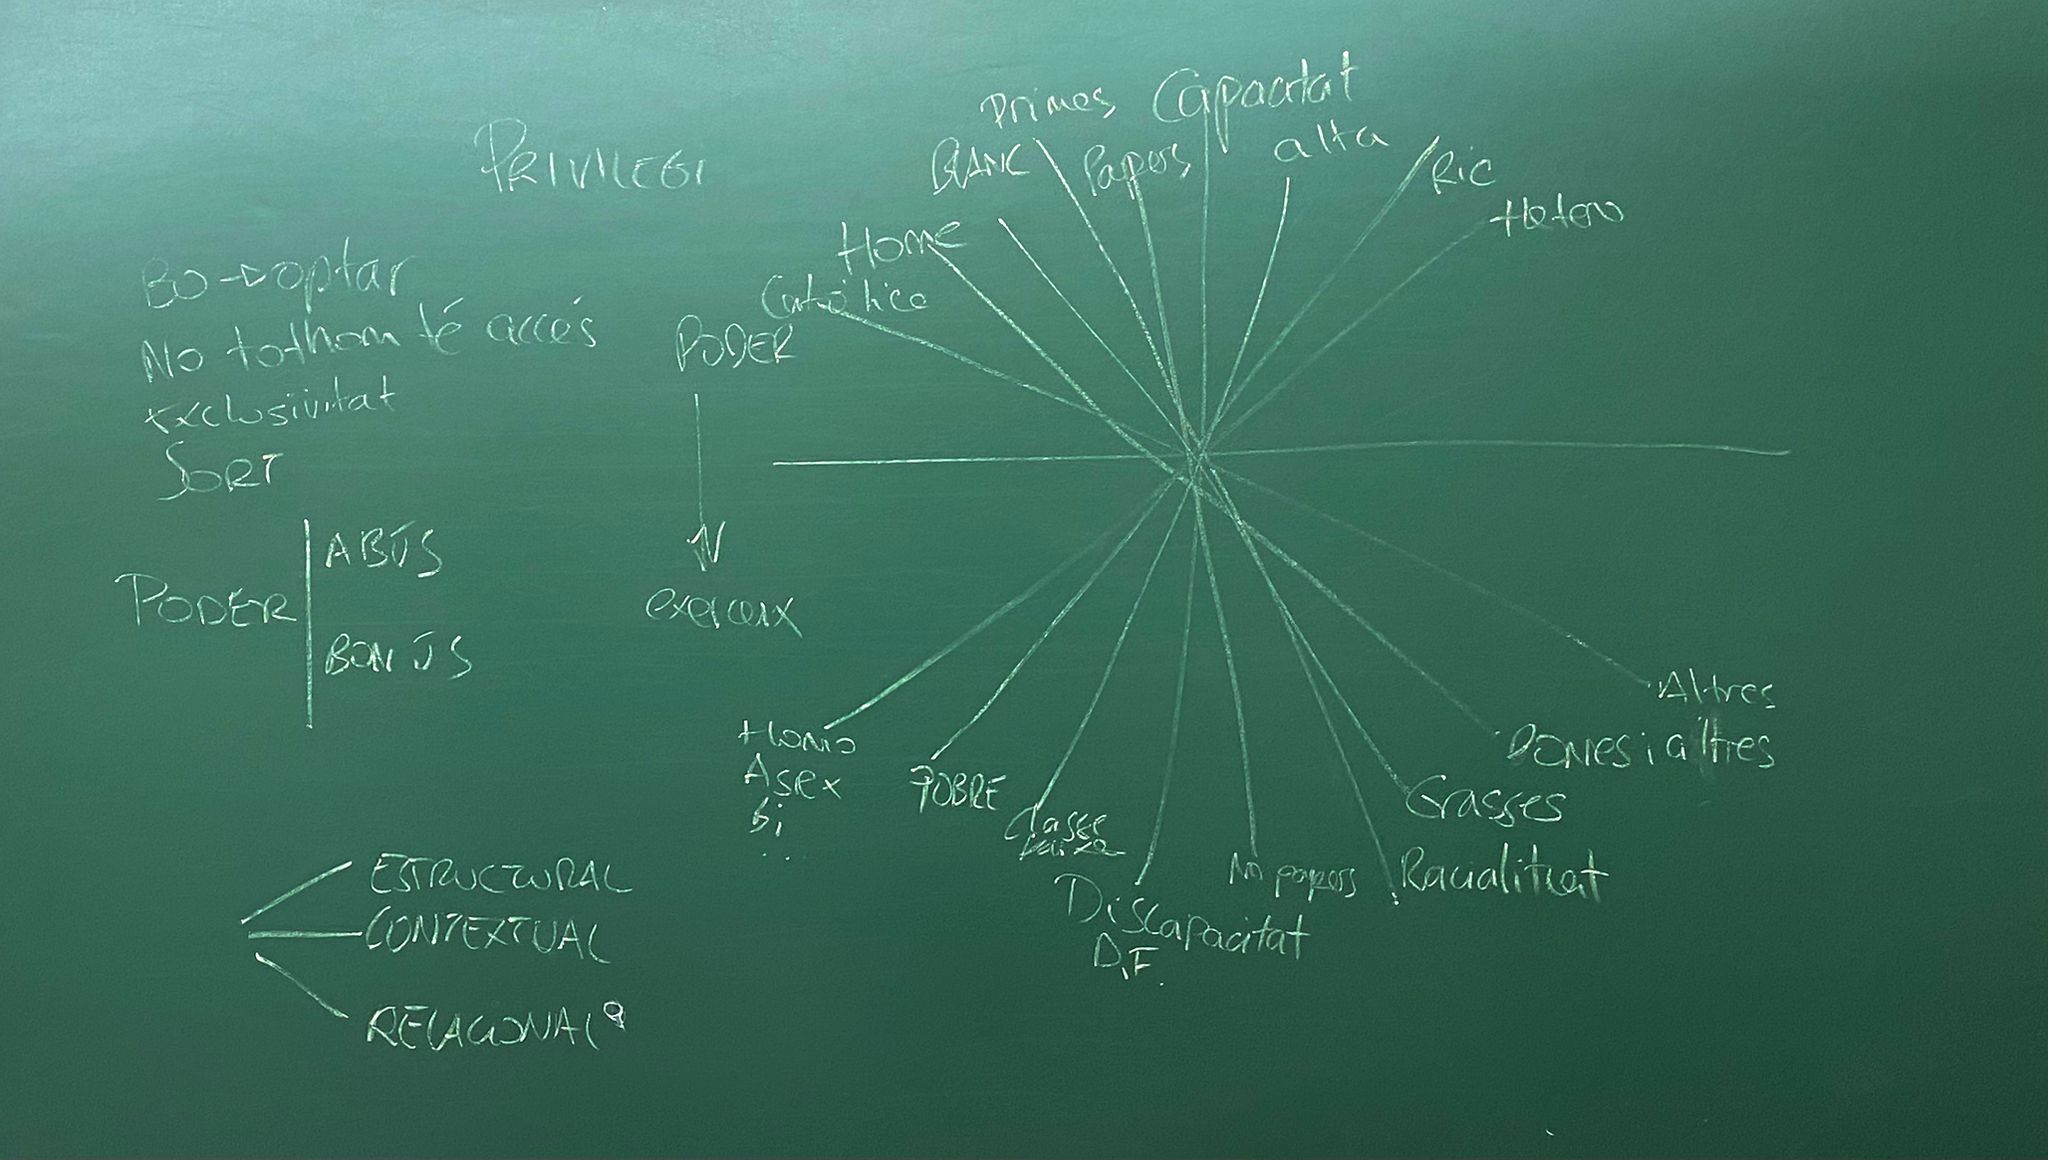 PRIVILEGI
BO → optar
No tothom té accés
Exclusivitat
SORT
PODER
ABÚS
BON ÚS
ESTRUCTURAL
CONTEXTUAL
RELACIONAL
PODER
exerceix
Primes
Capacitat
BLANC
Papers
alta
Ric
Hetero
Home
Católico
Homo
Asex
Bi
...
POBRE
Classe
baixa
Discapacitat
D.F.
No papers
Racialitzat
Grasses
Dones i altres
Altres